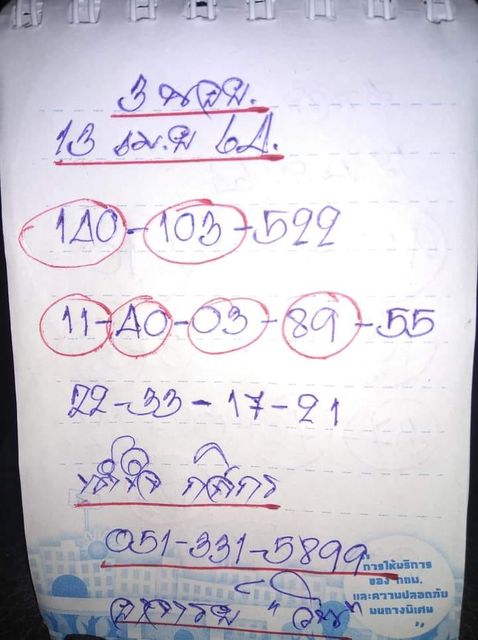 3 ฮอย.
13 เม.ย 64.
140-103-522
11-40-03-89-55
22-33-17-21
กสิกร
051-331-5899
อาจารย์ "วิน"
การให้บริการ
ของ กทม.
และความปลอดภัย
บนทางพิเศษ